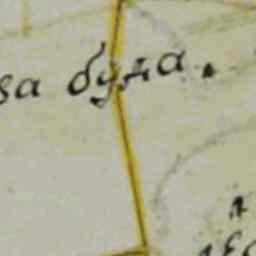 ва буда.